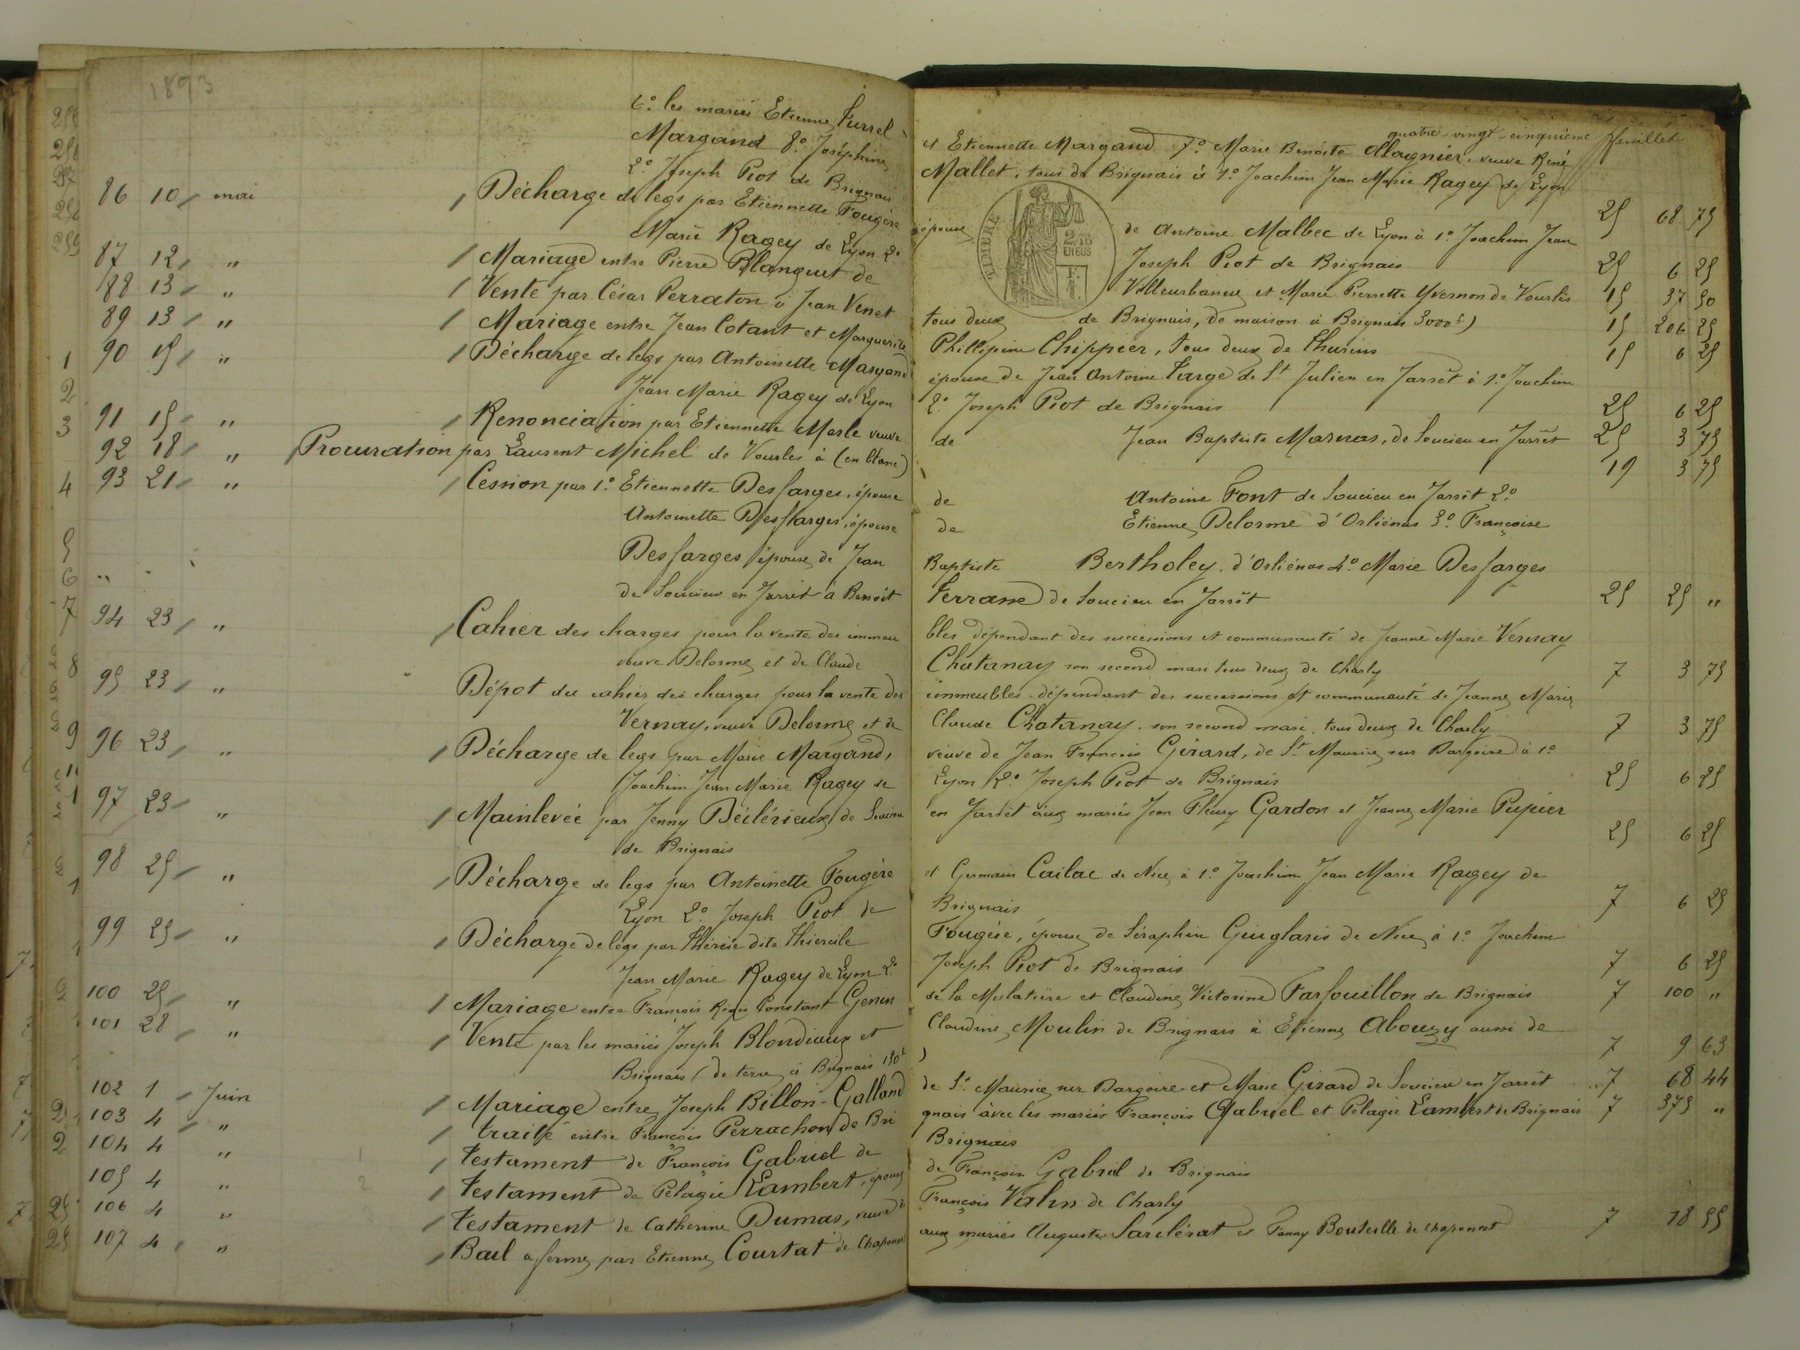 1893
quatre-vingt-cinquième feuillet
6° les mariés Etienne Furrel et Etiennede Margand 7° Marie Benoite Allagnier, veuve René
Margand 8° Joséphine Mallet, tous de Brignais à 1° Joachim Jean Marie Ragey de Lyon
2° Joseph Piot de Brignais 25 68 75
86 10 mai Décharge de legs par Etiennette Fougère épouse de Antoine Malbec de Lyon à 1° Joachim Jean
TIMBRE
2/10 EN SUS
Marie Ragey de Lyon 2° Joseph Piot de Brignais 25 6 25
87 12 " Mariage entre Pierre Blanquet de Villeurbanne et Marie Pierrette Yvernon de Vourles 15 37 50
88 13 " Vente par César Perraton à Jean Venet tous deux de Brignais, de maison à Brignais 3000f) 15 206 25
89 13 " Mariage entre Jean Cotant et Marguerite Phillipine Chippier, tous deux de Thurins 15 6 25
90 15 " Décharge de legs par Antoinette Margand épouse de Jean Antoine Farge de St Julien en Jarrêt à 1° Joachim
Jean Marie Ragey de Lyon 2° Joseph Piot de Brignais 25 6 25
91 15 " Renonciation par Etiennette Merle veuve de Jean Baptiste Marnas, de Soucieu en Jarrêt 25 3 75
92 18 " Procuration par Laurent Michel de Vourles à (en blanc) 19 3 75
93 21 " Cession par 1° Etiennette Desfarges, épouse de Antoine Font de Soucieu en Jarrêt 2°
Antoinette Desfarges, épouse de Etienne Delorme d'Orliénas 3° Françoise
Desfarges épouse de Jean Baptiste Bertholey, d'Orliénas 4° Marie Desfarges
de Soucieu en Jarrêt à Benoit Ferrane de Soucieu en Jarrêt 25 25 "
94 23 " Cahier des charges pour la vente des immeu bles dépendant des successions et communauté de Jeanne Marie Vernay
veuve Delorme et de Claude Chatanay son second mari tous deux de Charly 7 3 75
95 23 " Dépot du cahier des charges pour la vente des immeubles dépendant des successions et communauté de Jeanne Marie
Vernay, veuve Delorme et de Claude Chatanay, son second mari, tous deux de Charly 7 3 75
96 23 " Décharge de legs par Marie Margand, veuve de Jean Francois Girard, de St Maurice sur Dargoire à 1°
Joachim Jean Marie Ragey de Lyon 2° Joseph Piot de Brignais 25 6 25
97 23 " Mainlevée par Jenny Déclérieux de Soucieu en Jarrêt aux mariés Jean Fleury Gardon et Jeanne Marie Pupier
de Brignais 25 6 25
98 25 " Décharge de legs par Antoinette Fougère et Germain Cailac de Nice à 1° Joachim Jean Marie Ragey de
Lyon 2° Joseph Piot de Brignais 7 6 25
99 25 " Décharge de legs par Thérèse dite Fougère, épouse de Séraphin Guiglaris de Nice à 1° Joachim
Jean Marie Ragey de Lyon 2° Joseph Piot de Brignais 7 6 25
100 25 " Mariage entre François Constant Genin de la Mulatière et Claudine Victorine Farfouillon de Brignais 7 100 "
101 28 " Vente par les mariés Joseph Blondieux et Claudine Moulin de Brignais à Etienne Abouzy aussi de
Brignais (de terre à Brignais 130f) 7 9 63
102 1 Juin Mariage entre Joseph Billon-Galland de St Maurice sur Dargoire et Marie Girard de Soucieu en Jarrêt 7 68 44
103 4 " Traité entre François Perrachon de Bri gnais avec les mariés François Gabriel et Pélagie Lambert de Brignais 7 375 "
104 4 " Testament de François Gabriel de Brignais
105 4 " Testament de Pélagie Lambert, épouse de François Gabriel de Brignais
106 4 " Testament de Catherine Dumas, veuve de François Valin de Charly
107 4 " Bail a ferme par Etienne Courtat de Chaponost aux mariés Auguste Sarclérat et Fanny Bouteille de Chaponost 7 18 55